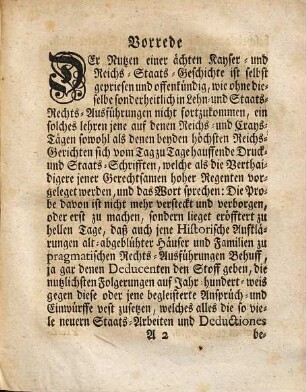 Vorrede
DEr Nutzen einer ächten Kayser- und
Reichs-Staats-Geschichte ist selbst
gepriesen und offenkündig, wie ohne die-
selbe sonderheitlich in Lehn- und Staats-
Rechts-Ausführungen nicht fortzukommen, ein
solches lehren jene auf denen Reichs- und Crays-
Tägen sowohl als denen beyden höchsten Reichs-
Gerichten sich vom Tag zu Tage hauffende Druck-
und Staats-Schrifften, welche als die Verthai-
digere jener Gerechtsamen hoher Regenten vor-
geleget werden, und das Wort sprechen: Die Pro-
be davon ist nicht mehr versteckt und verborgen,
oder erst zu machen, sondern lieget eröfftert zu
hellen Tage, daß auch jene Historische Aufklä-
rungen alt-abgeblühter Häuser und Familien zu
pragmatischen Rechts-Ausführungen Behuff,
ja gar denen Deducenten den Stoff geben, die
nutzlichsten Folgerungen auf Jahr-hundert-weis
gegen diese oder jene begleisterte Ansprüch- und
Einwürffe vest zu setzen, welches alles die so vie-
le neuern Staats-Arbeiten und Deductiones
A 2 be-